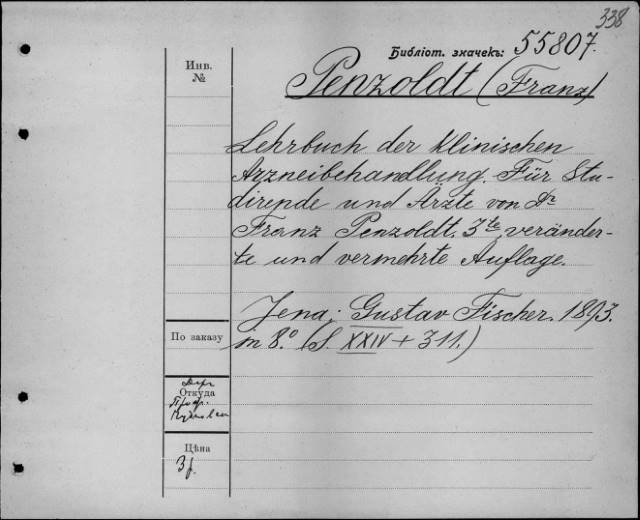 338
Библіот. значекъ: 55807.
Инв.
№
Penzoldt (Franz)
Lehrbuch der klinischen
Arzneibehandlung. Für Stu-
dirende und Ärzte von Dr
Franz Penzoldt. 3te veränder-
te und vermehrte Auflage.
Jena: Gustav Fischer. 1893.
in 8.° (S. XXIV + 311.)
По заказу
Откуда
Проф.
Цѣна
3 р.